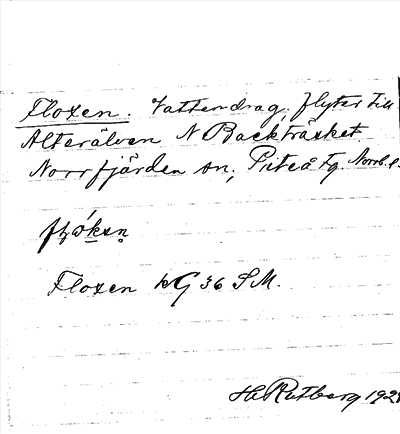 Floxen. Vattendrag, flyter till
Alterälven N Backträsket
Norrfjärden sn, Piteå tg. Norrb. l.
Floxen kG 36 S.M.
H Rutberg 192